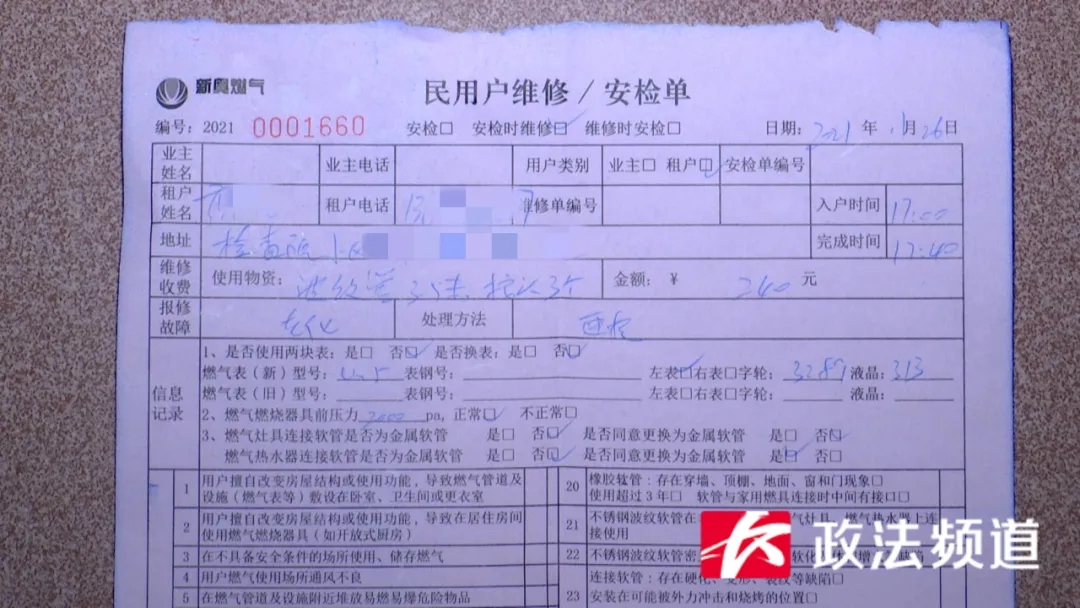 新奥燃气
民用户维修／安检单
编号：2021 0001660 安检□ 安检时维修□ 维修时安检□ 日期：2021 年 1月26日
业主姓名 业主电话 用户类别 业主□ 租户□ 安检单编号
租户姓名 租户电话 维修单编号 入户时间 17:00
地址 检查院 完成时间 17:40
维修收费 使用物资：波纹管3.5米 接头3个 金额：¥ 240 元
报修故障 处理方法
信息记录
1、是否使用两块表：是□ 否□ 是否换表：是□ 否□
燃气表（新）型号： 表钢号： 左表□右表□字轮：3287 液晶：313
燃气表（旧）型号： 表钢号： 左表□右表□字轮： 液晶：
2、燃气燃烧器具前压力2000pa，正常□ 不正常□
3、燃气灶具连接软管是否为金属软管 是□ 否□ 是否同意更换为金属软管 是□ 否□
燃气热水器连接软管是否为金属软管 是□ 否□ 是否同意更换为金属软管 是□ 否□
1 用户擅自改变房屋结构或使用功能，导致燃气管道及设施（燃气表等）敷设在卧室、卫生间或更衣室
20 橡胶软管：存在穿墙、顶棚、地面、窗和门现象□ 使用超过3年□ 软管与家用燃具连接时中间有接口□
2 用户擅自改变房屋结构或使用功能，导致在居住房间使用燃气燃烧器具（如开放式厨房）
21 不锈钢波纹软管在 气灶具、燃气热水器上连接使用
3 在不具备安全条件的场所使用、储存燃气
22 不锈钢波纹软管
4 用户燃气使用场所通风不良
23 连接软管：存在硬化、变形、裂纹等缺陷□
5 在燃气管道及设施附近堆放易燃易爆危险物品
安装在可能被外力冲击和烧烤的位置□
政法频道